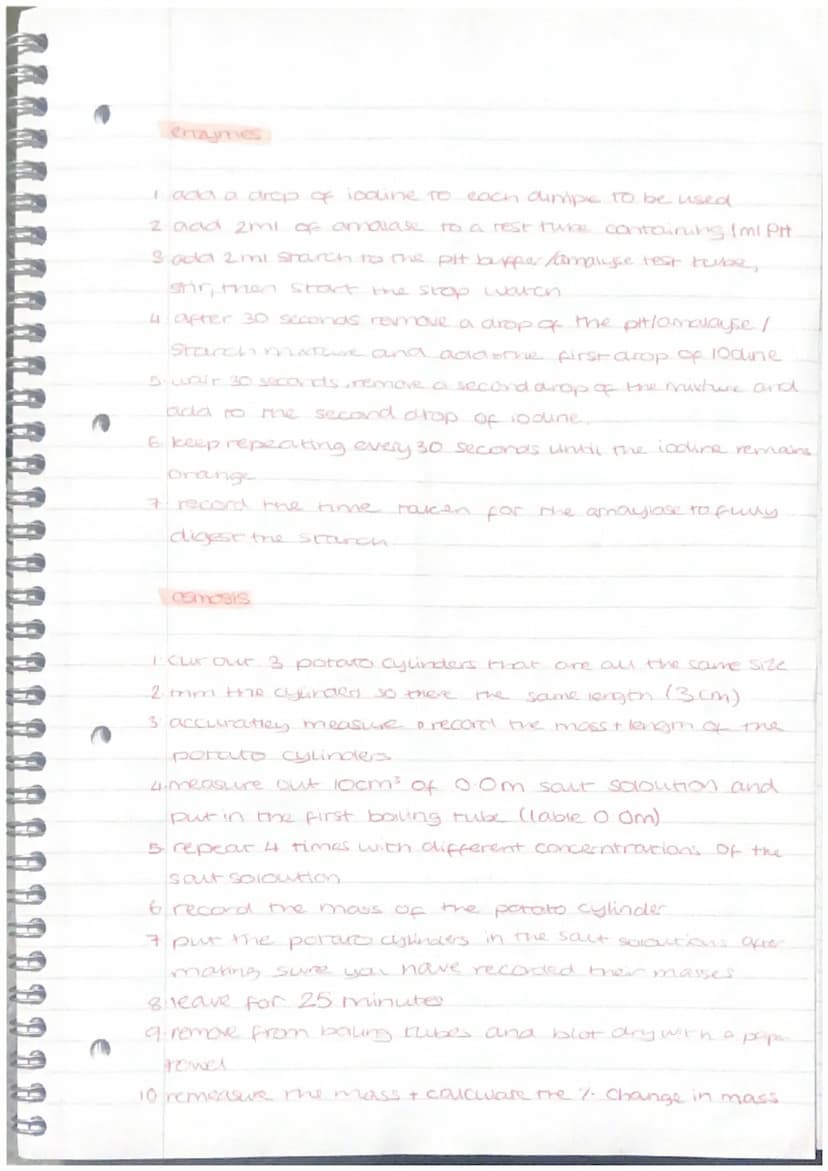 enzymes
1 add a drop of iodine to each dimple to be used
2 add 2ml of amalase to a test tube containing 1ml PH
3 add 2ml starch to the pH buffer/amalyse test tube,
stir, then start the stop watch
4 after 30 seconds remove a drop of the pH/amalayse/
starch mixture and add to the first drop of iodine
5 wait 30 seconds, remove a second drop of the mixture and
add to the second drop of iodine.
6 keep repeating every 30 seconds until the iodine remains
orange
7 record the time taken for the amaylase to fully
digest the starch
osmosis
1 cut out 3 potato cylinders that are all the same size
2 trim the cylinders so there the same length (3cm)
3 accuratley measure + record the mass + length of the
potato cylinders
4 measure out 10cm³ of 0.0m salt soloution and
put in the first boiling tube (lable 0.0m)
5 repeat 4 times with different concentrations of the
salt soloution
6 record the mass of the potato cylinder
7 put the potato cylinders in the salt soloutions after
making sure you have recorded their masses
8 leave for 25 minutes
9 remove from boiling tubes and blot dry with a paper
towel
10 remeasure the mass + calculate the % change in mass